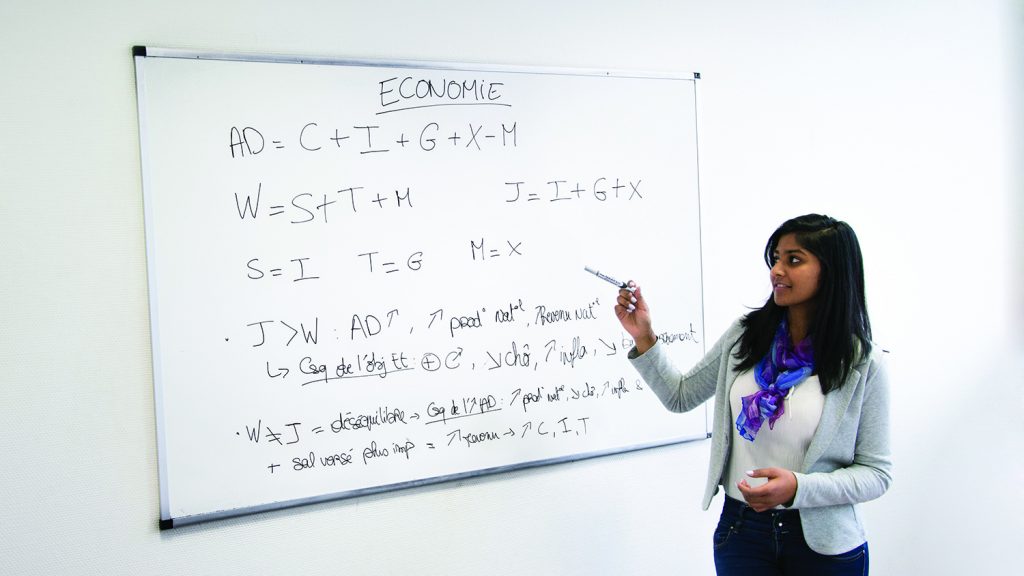 ECONOMIE
AD = C + I + G + X - M
W = S + T + M J = I + G + X
S = I T = G M = X
• J > W : AD ↗, ↗ prod° natle, ↗ Revenu Natle
↳ Csq de l'obj Et : ⊕ C°, ↘ chô, ↗ infla, ↘
• W ≠ J = déséquilibre → Csq de l'↗ AD : ↗ prod° natle, ↘ chô, ↗ infla &
+ sal versé plus imp = ↗ revenu → ↗ C, I, T